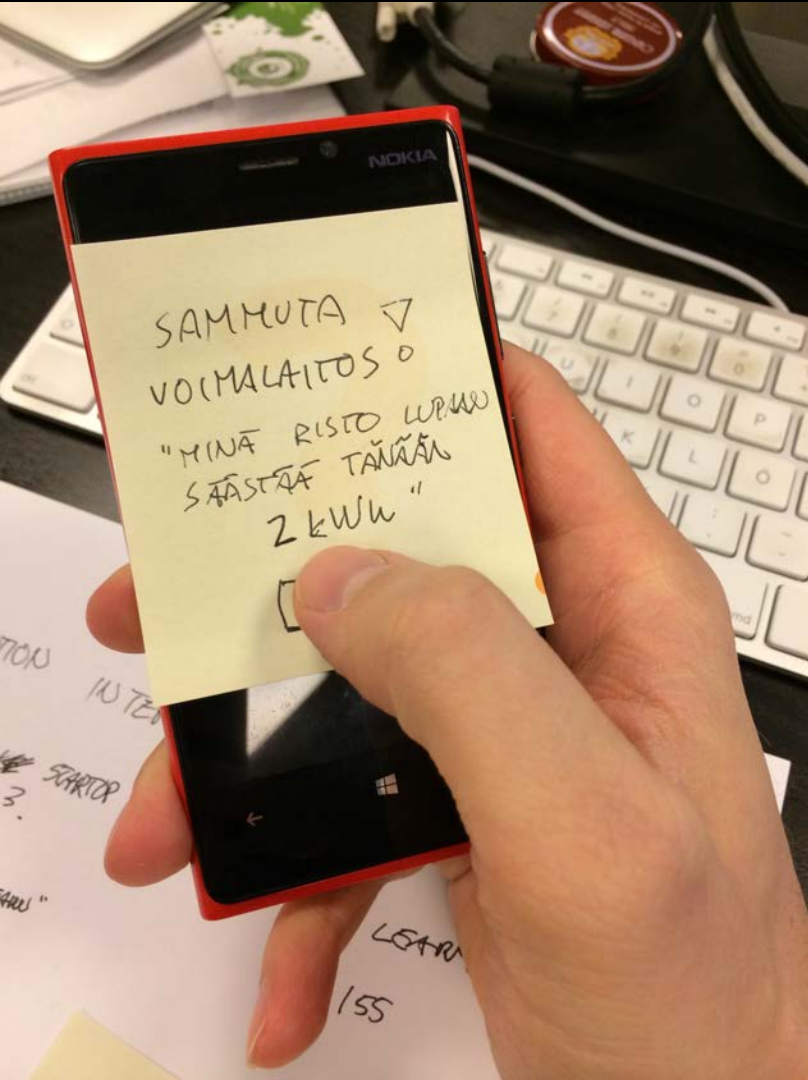 NOKIA
SAMMUTA
VOIMALAITOS
"MINÄ RISTO LUPAAN
SÄÄSTÄÄ TÄNÄÄN
2 kWh"
U
I
O
P
K
L
Ö
cmd
STARTUP
3.
LEARN
155